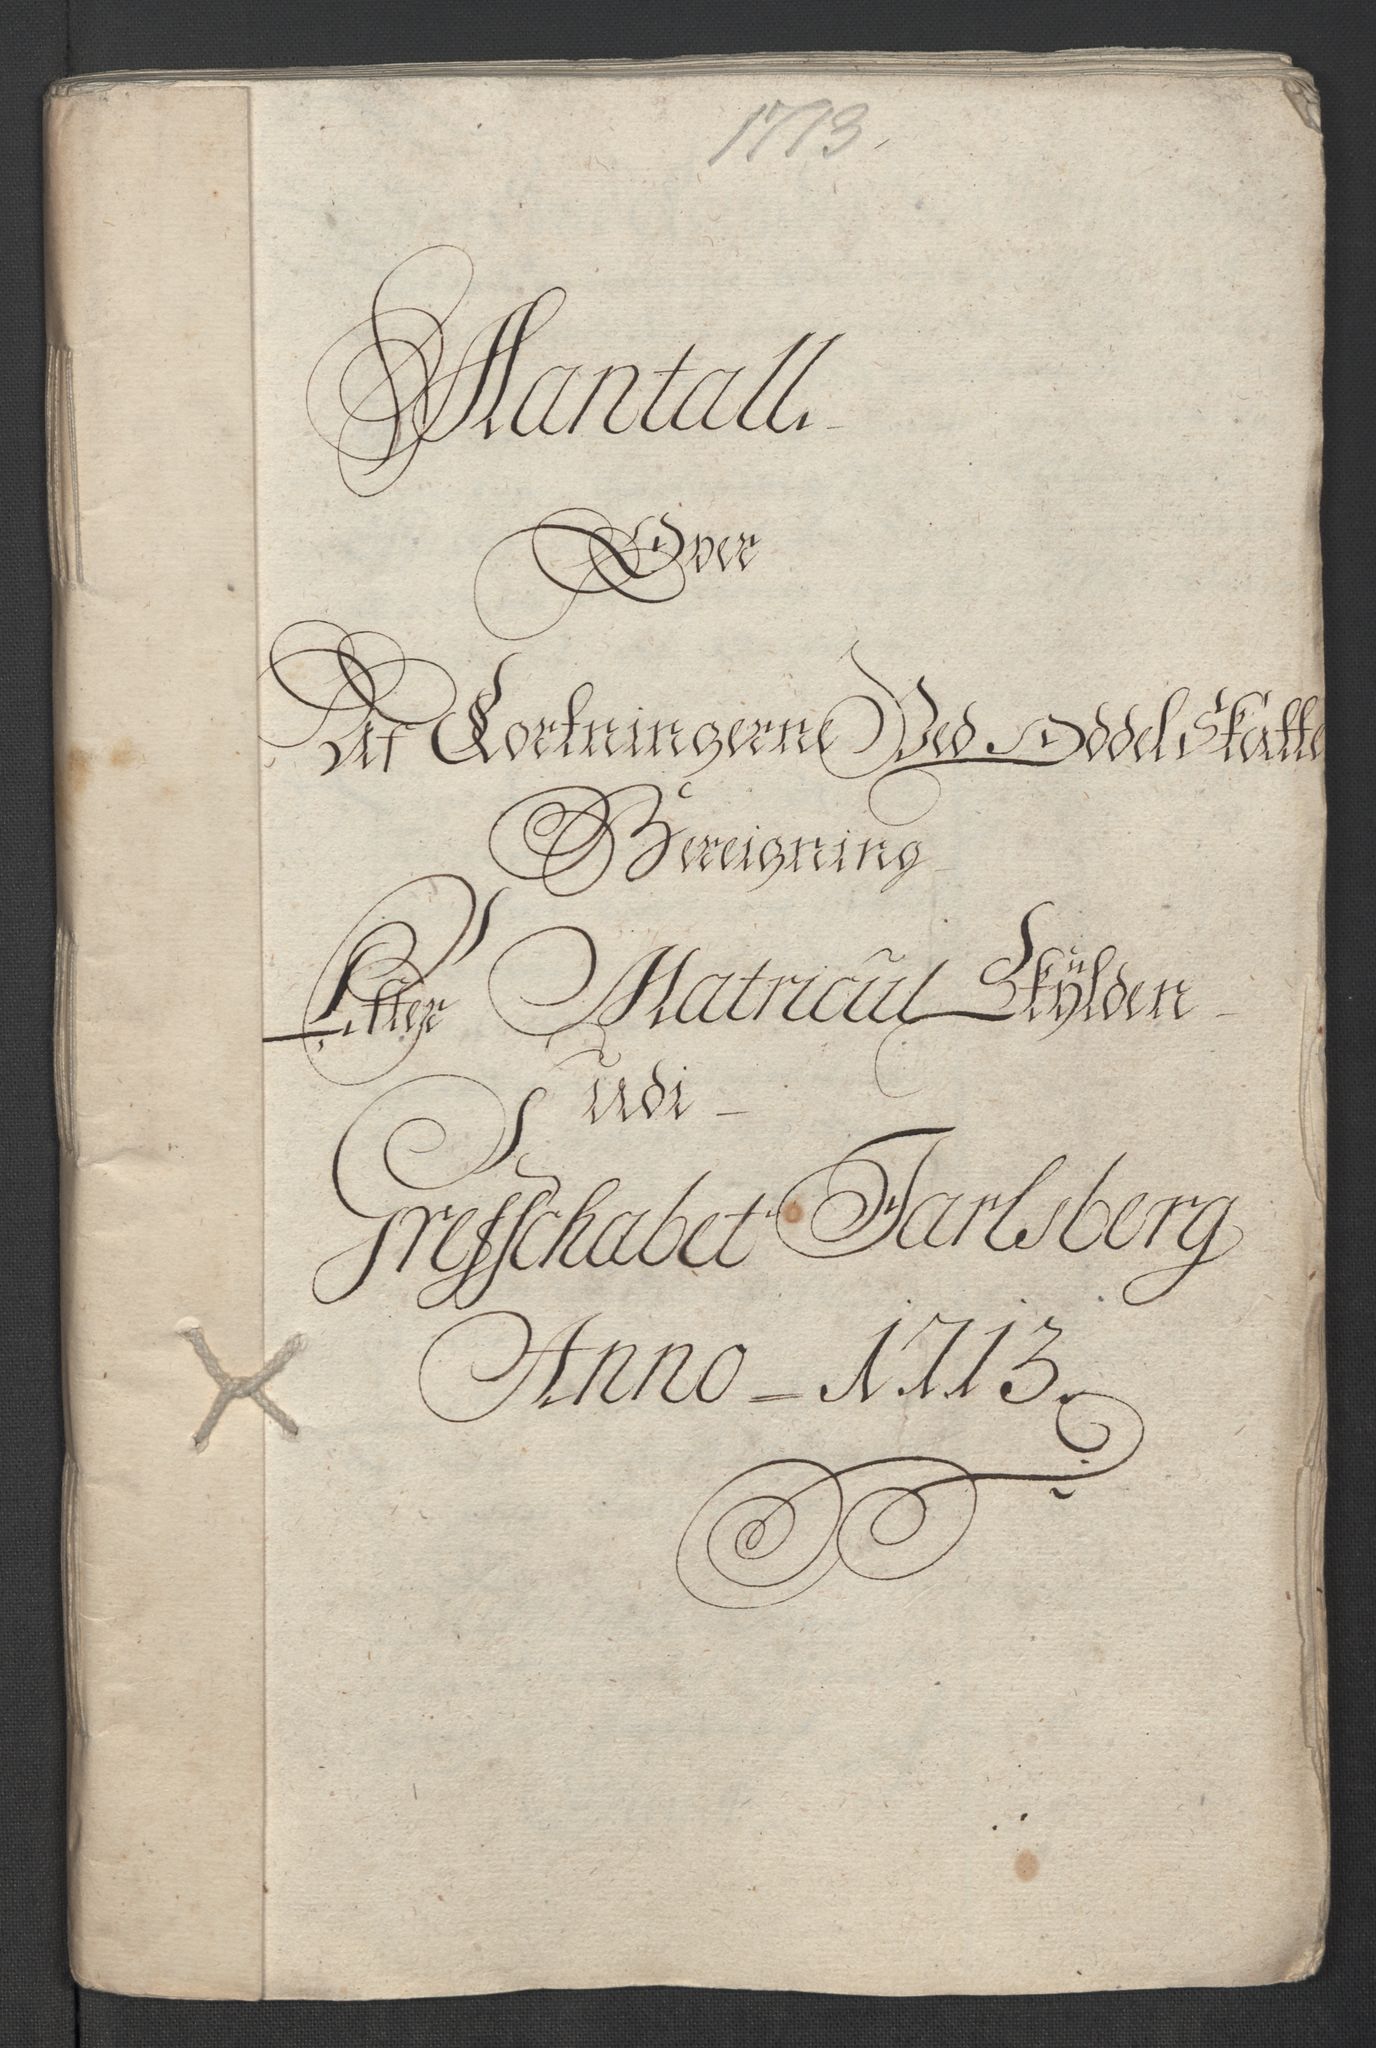 1713.
Mantall
Over
Af Cortningerne Ved Oddel Skatte
Bereigning
Efter Matricul Skÿlden
udi
Grefschabet Jarlsberg
Anno 1713.